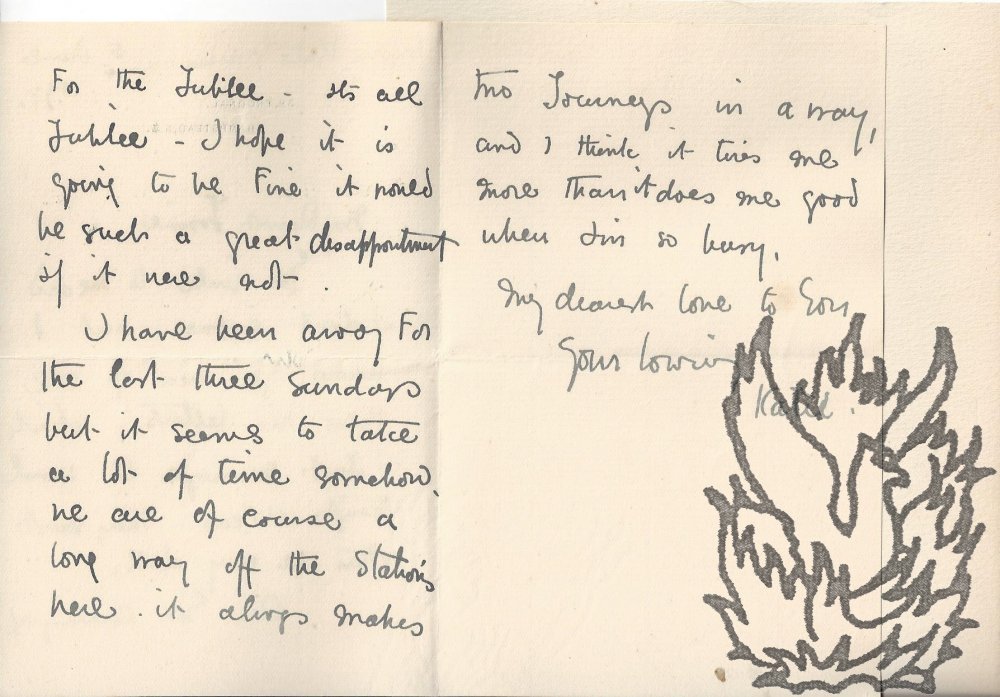 For the Jubilee - its all
Jubilee - I hope it is
going to be Fine it would
be such a great disappointment
if it were not.
I have been away For
the last three Sundays
but it seems to take
a lot of time somehow.
we are of course a
long way off the Stations
here. it always makes
two Journeys in a way,
and I think it tires me
more than it does me good
when I'm so busy.
My dearest love to You
Your loving